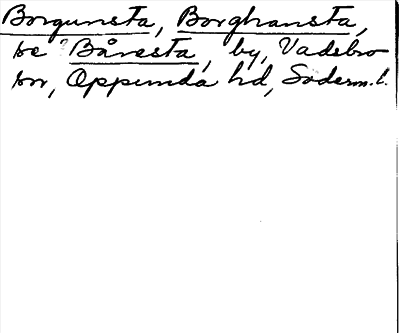 Borgunsta, Borghansta,
se Båresta, by, Vadsbro
sn, Oppunda hd, Söderm. l.